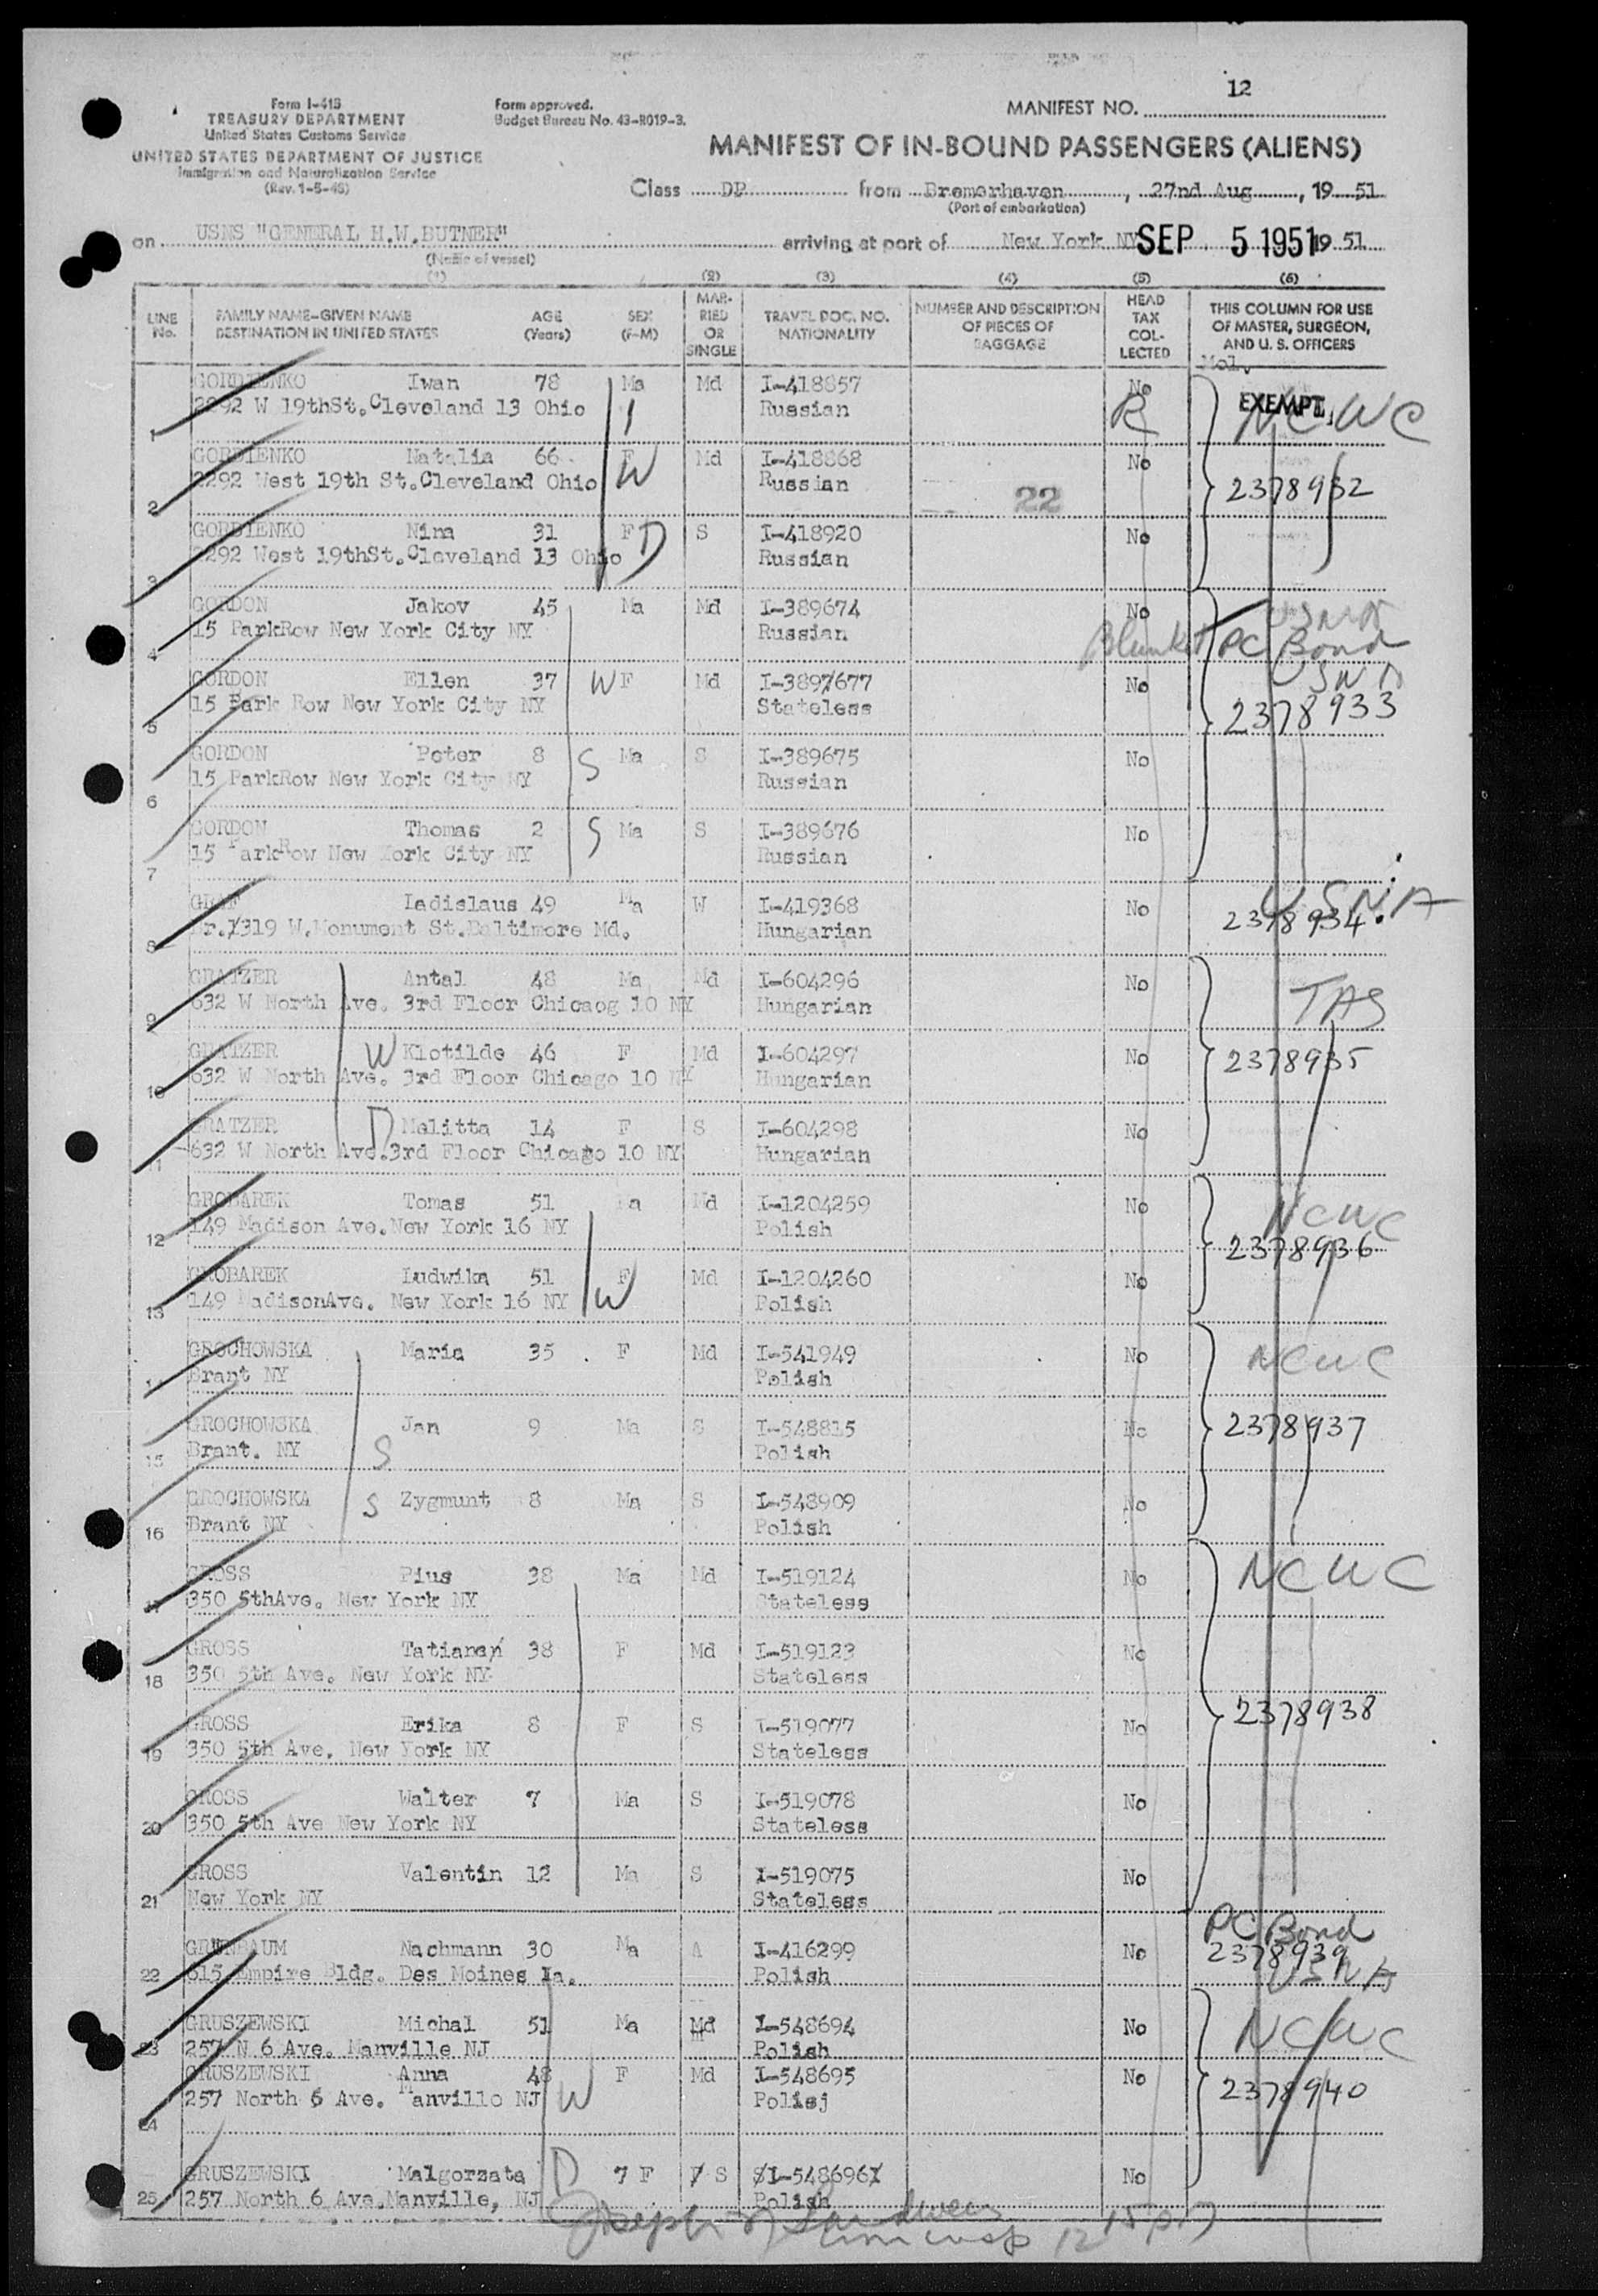 12
Form I-418
TREASURY DEPARTMENT
United States Customs Service
UNITED STATES DEPARTMENT OF JUSTICE
Immigration and Naturalization Service
(Rev. 1-5-48)
Form approved.
Budget Bureau No. 43-R019-3.
MANIFEST NO.
MANIFEST OF IN-BOUND PASSENGERS (ALIENS)
Class DP from Bremerhaven, 27nd Aug, 19 51
(Port of embarkation)
on USNS "GENERAL H.W.BUTNER" arriving at port of New York NY SEP 5 1951 19 51
(Name of vessel)
(1) (2) (3) (4) (5) (6)
LINE No. FAMILY NAME-GIVEN NAME DESTINATION IN UNITED STATES AGE (Years) SEX (F-M) MARRIED OR SINGLE TRAVEL DOC. NO. NATIONALITY NUMBER AND DESCRIPTION OF PIECES OF BAGGAGE HEAD TAX COLLECTED THIS COLUMN FOR USE OF MASTER, SURGEON, AND U. S. OFFICERS
GORDIENKO Iwan 78 Ma Md I-418857 No EXEMPT NCWC
1 2292 W 19thSt.Cleveland 13 Ohio Russian R
GORDIENKO Natalia 66 F W Md I-418868 No
2 2292 West 19th St.Cleveland Ohio Russian 22 2378932
GORDIENKO Nina 31 F D S I-418920 No
3 2292 West 19thSt.Cleveland 13 Ohio Russian
GORDON Jakov 45 Ma Md I-389674 No USNA
4 15 ParkRow New York City NY Russian Blanket PC Bond
GORDON Ellen 37 W F Md I-3897677 No USNA
5 15 Park Row New York City NY Stateless 2378933
GORDON Peter 8 S Ma S I-389675 No
6 15 ParkRow New York City NY Russian
GORDON Thomas 2 S Ma S I-389676 No
7 15 ParkRow New York City NY Russian
GRAF Ladislaus 49 Ma W I-419368 No USNA
8 Nr.1319 W.Monument St.Baltimore Md. Hungarian 2378934
GRATZER Antal 48 Ma Md I-604296 No TAS
9 632 W North Ave. 3rd Floor Chicaog 10 NY Hungarian
GRATZER W Klotilde 46 F Md I-604297 No 2378935
10 632 W North Ave. 3rd Floor Chicago 10 NY Hungarian
GRATZER D Melitta 14 F S I-604298 No
11 632 W North Ave.3rd Floor Chicago 10 NY Hungarian
GROBAREK Tomas 51 Ma Md I-1204259 No NCWC
12 149 Madison Ave.New York 16 NY Polish 2378936
GROBAREK Ludwika 51 F W Md I-1204260 No
13 149 MadisonAve. New York 16 NY Polish
GROCHOWSKA Maria 35 F Md I-541949 No NCWC
14 Brant NY Polish
GROCHOWSKA Jan 9 Ma S I-548815 No 2378937
15 Brant. NY S Polish
GROCHOWSKA S Zygmunt 8 Ma S I-548909 No
16 Brant NY Polish
GROSS Pius 38 Ma Md I-519124 No NCWC
17 350 5thAve. New York NY Stateless
GROSS Tatiana 38 F Md I-519123 No
18 350 5th Ave. New York NY Stateless
GROSS Erika 8 F S I-519077 No 2378938
19 350 5th Ave. New York NY Stateless
GROSS Walter 7 Ma S I-519078 No
20 350 5th Ave New York NY Stateless
GROSS Valentin 12 Ma S I-519075 No
21 New York NY Stateless
GRUNBAUM Nachmann 30 Ma A I-416299 No PC Bond 2378939
22 615 Empire Bldg. Des Moines Ia. Polish USNA
GRUSZEWSKI Michal 51 Ma Md I-548694 No NCWC
23 257 N 6 Ave. Manville NJ Polish
GRUSZEWSKI Anna 48 W F Md I-548695 No 2378940
24 257 North 6 Ave. Manville NJ Polisj
GRUSZEWSKI Malgorzata D 7 F S I-548696 No
25 257 North 6 Ave.Manville, NJ Polish
Joseph 12 15 pm